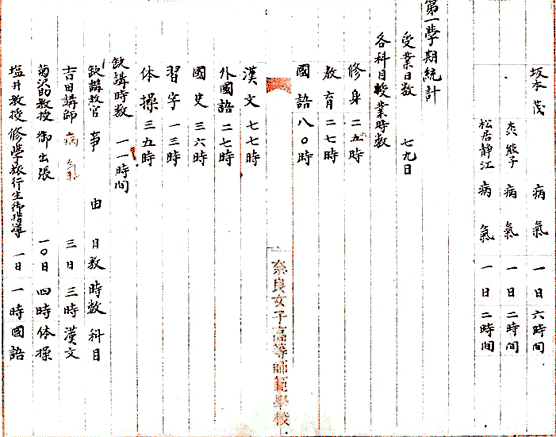 坂本茂 病氣 一日六時間
病氣 一日二時間
松居靜江 病氣 一日二時間
第一學期統計
受業日数 七九日
各科目授業時数
修身 二五時
教育 二七時
國語 八〇時
奈良女子高等師範學校
漢文 七七時
外國語 二七時
國史 三六時
習字 一三時
体操 三五時
缺講時数 一一時間
缺講教官 事由 日数 時数 科目
吉田講師 病氣 三日 三時 漢文
菊沢教授 御出張 一〇日 四時 体操
塩井教授 修學旅行生御指導 一日 一時 國語